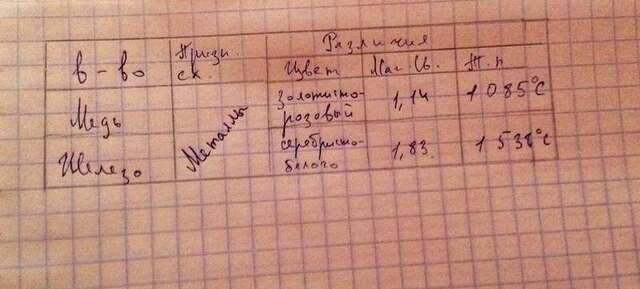 Различия
в-во Призн. сх. Цвет Маг. св. Т.п
Медь Металлы золотисто-розовый 1,14 1 085°C
Железо серебристо-белого 1,83 1 538°C